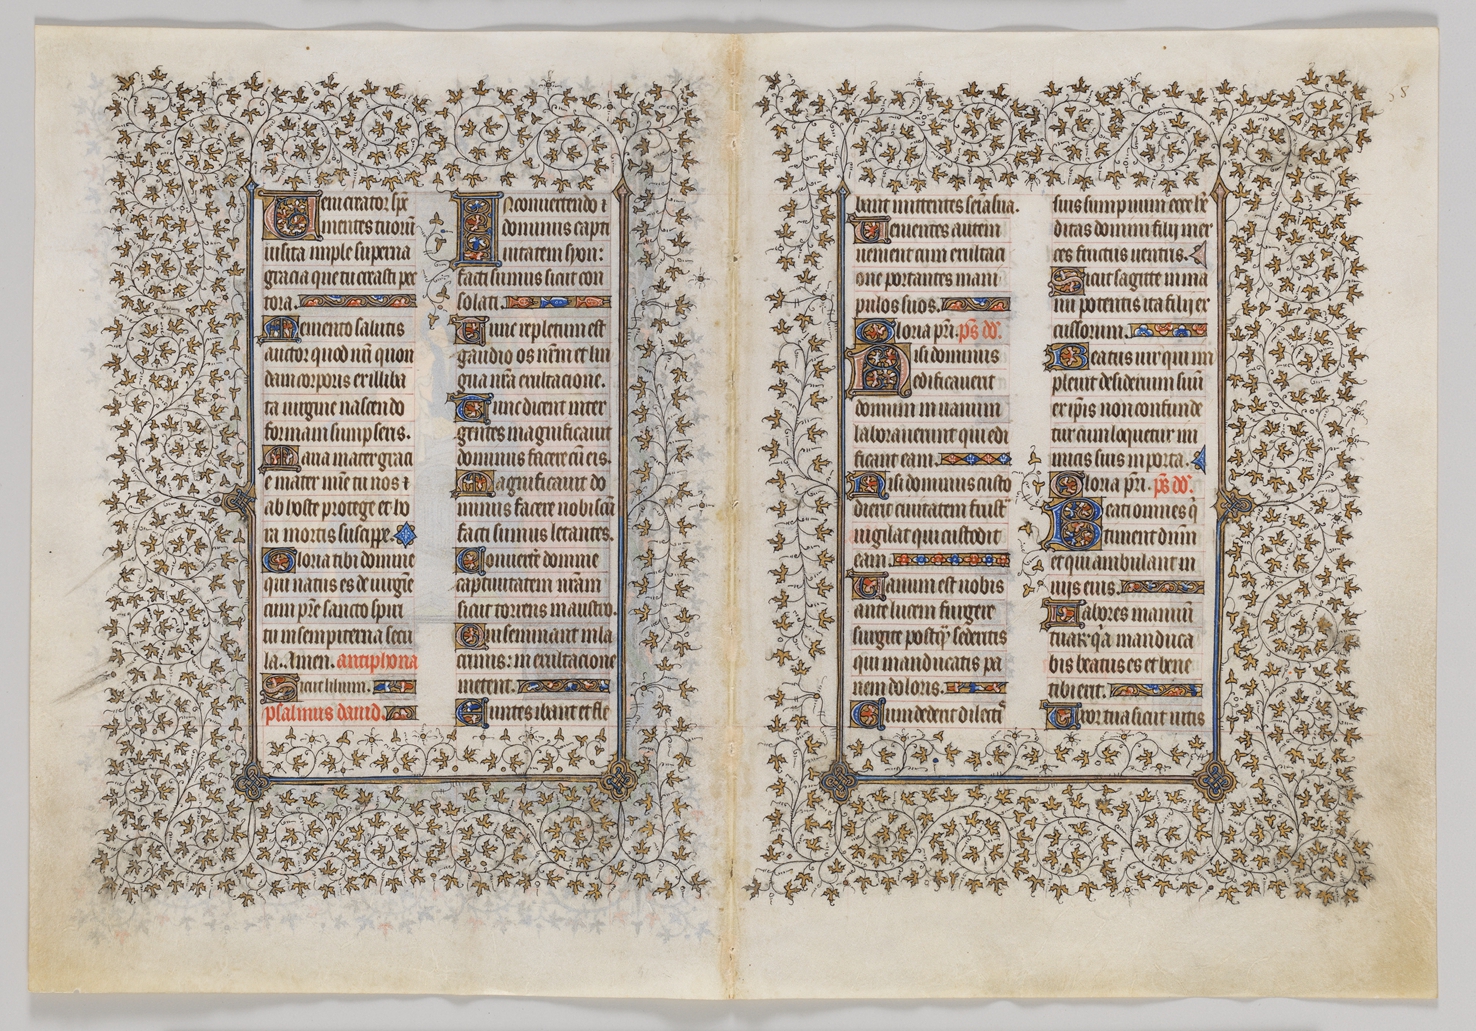 Veni creator spc
mentes tuorū
visita imple superna
gracia que tu creasti pec
tora.
Memento salutis
auctor quod nr̄i quon
dam corporis ex illiba
ta virgine nascendo
formam sumpseris.
Maria mater graci
e mater mīe tu nos ⁊
ab hoste protege et ho
ra mortis suscipe.
Gloria tibi domine
qui natus es de virgīe
cum pr̄e sancto spiri
tu in sempiterna secu
la. Amen. antiphona
Sicut lilium.
psalmus david.
In convertendo
dominus capti
vitatem syon:
facti sumus sicut con
solati.
Tunc repletum est
gaudio os nr̄m et lin
gua nr̄a exultacione.
Tunc dicent inter
gentes magnificavit
dominus facere cū eis.
Magnificavit do
minus facere nobiscū
facti sumus letantes.
Converte domine
captivitatem nr̄am
sicut torrens in austro.
Qui seminant in la
crimis: in exultacione
metent.
Euntes ibant et fle
bant mittentes seīa sua.
Venientes autem
venient cum exultaci
one portantes mani
pulos suos.
Gloria pr̄i. ps̄ dd̄.
Nisi dominus
edificaverit
domum in vanum
laboraverunt qui edi
ficant eam.
Nisi dominus custo
dierit civitatem frust̄
vigilat qui custodit
eam.
Vanum est nobis
ante lucem surgere
surgite postq̄ sederitis
qui manducatis pa
nem doloris.
Cum dederit dilect̄
suis sompnum ecce he
ditas domini filij mer
ces fructus ventris.
Sicut sagitte in ma
nu potentis ita filij ex
cussorum.
Beatus vir qui im
plevit desiderium suū
ex ipīs non confunde
tur cum loquetur ini
micis suis in porta.
Gloria pr̄i. ps̄ dd̄.
Beati omnes q̄
timent dn̄m
et qui ambulant in
vijs eius.
Labores manuū
tuaꝝ q̄a manduca
bis beatus es et bene
tibi erit.
Uxor tua sicut vitis